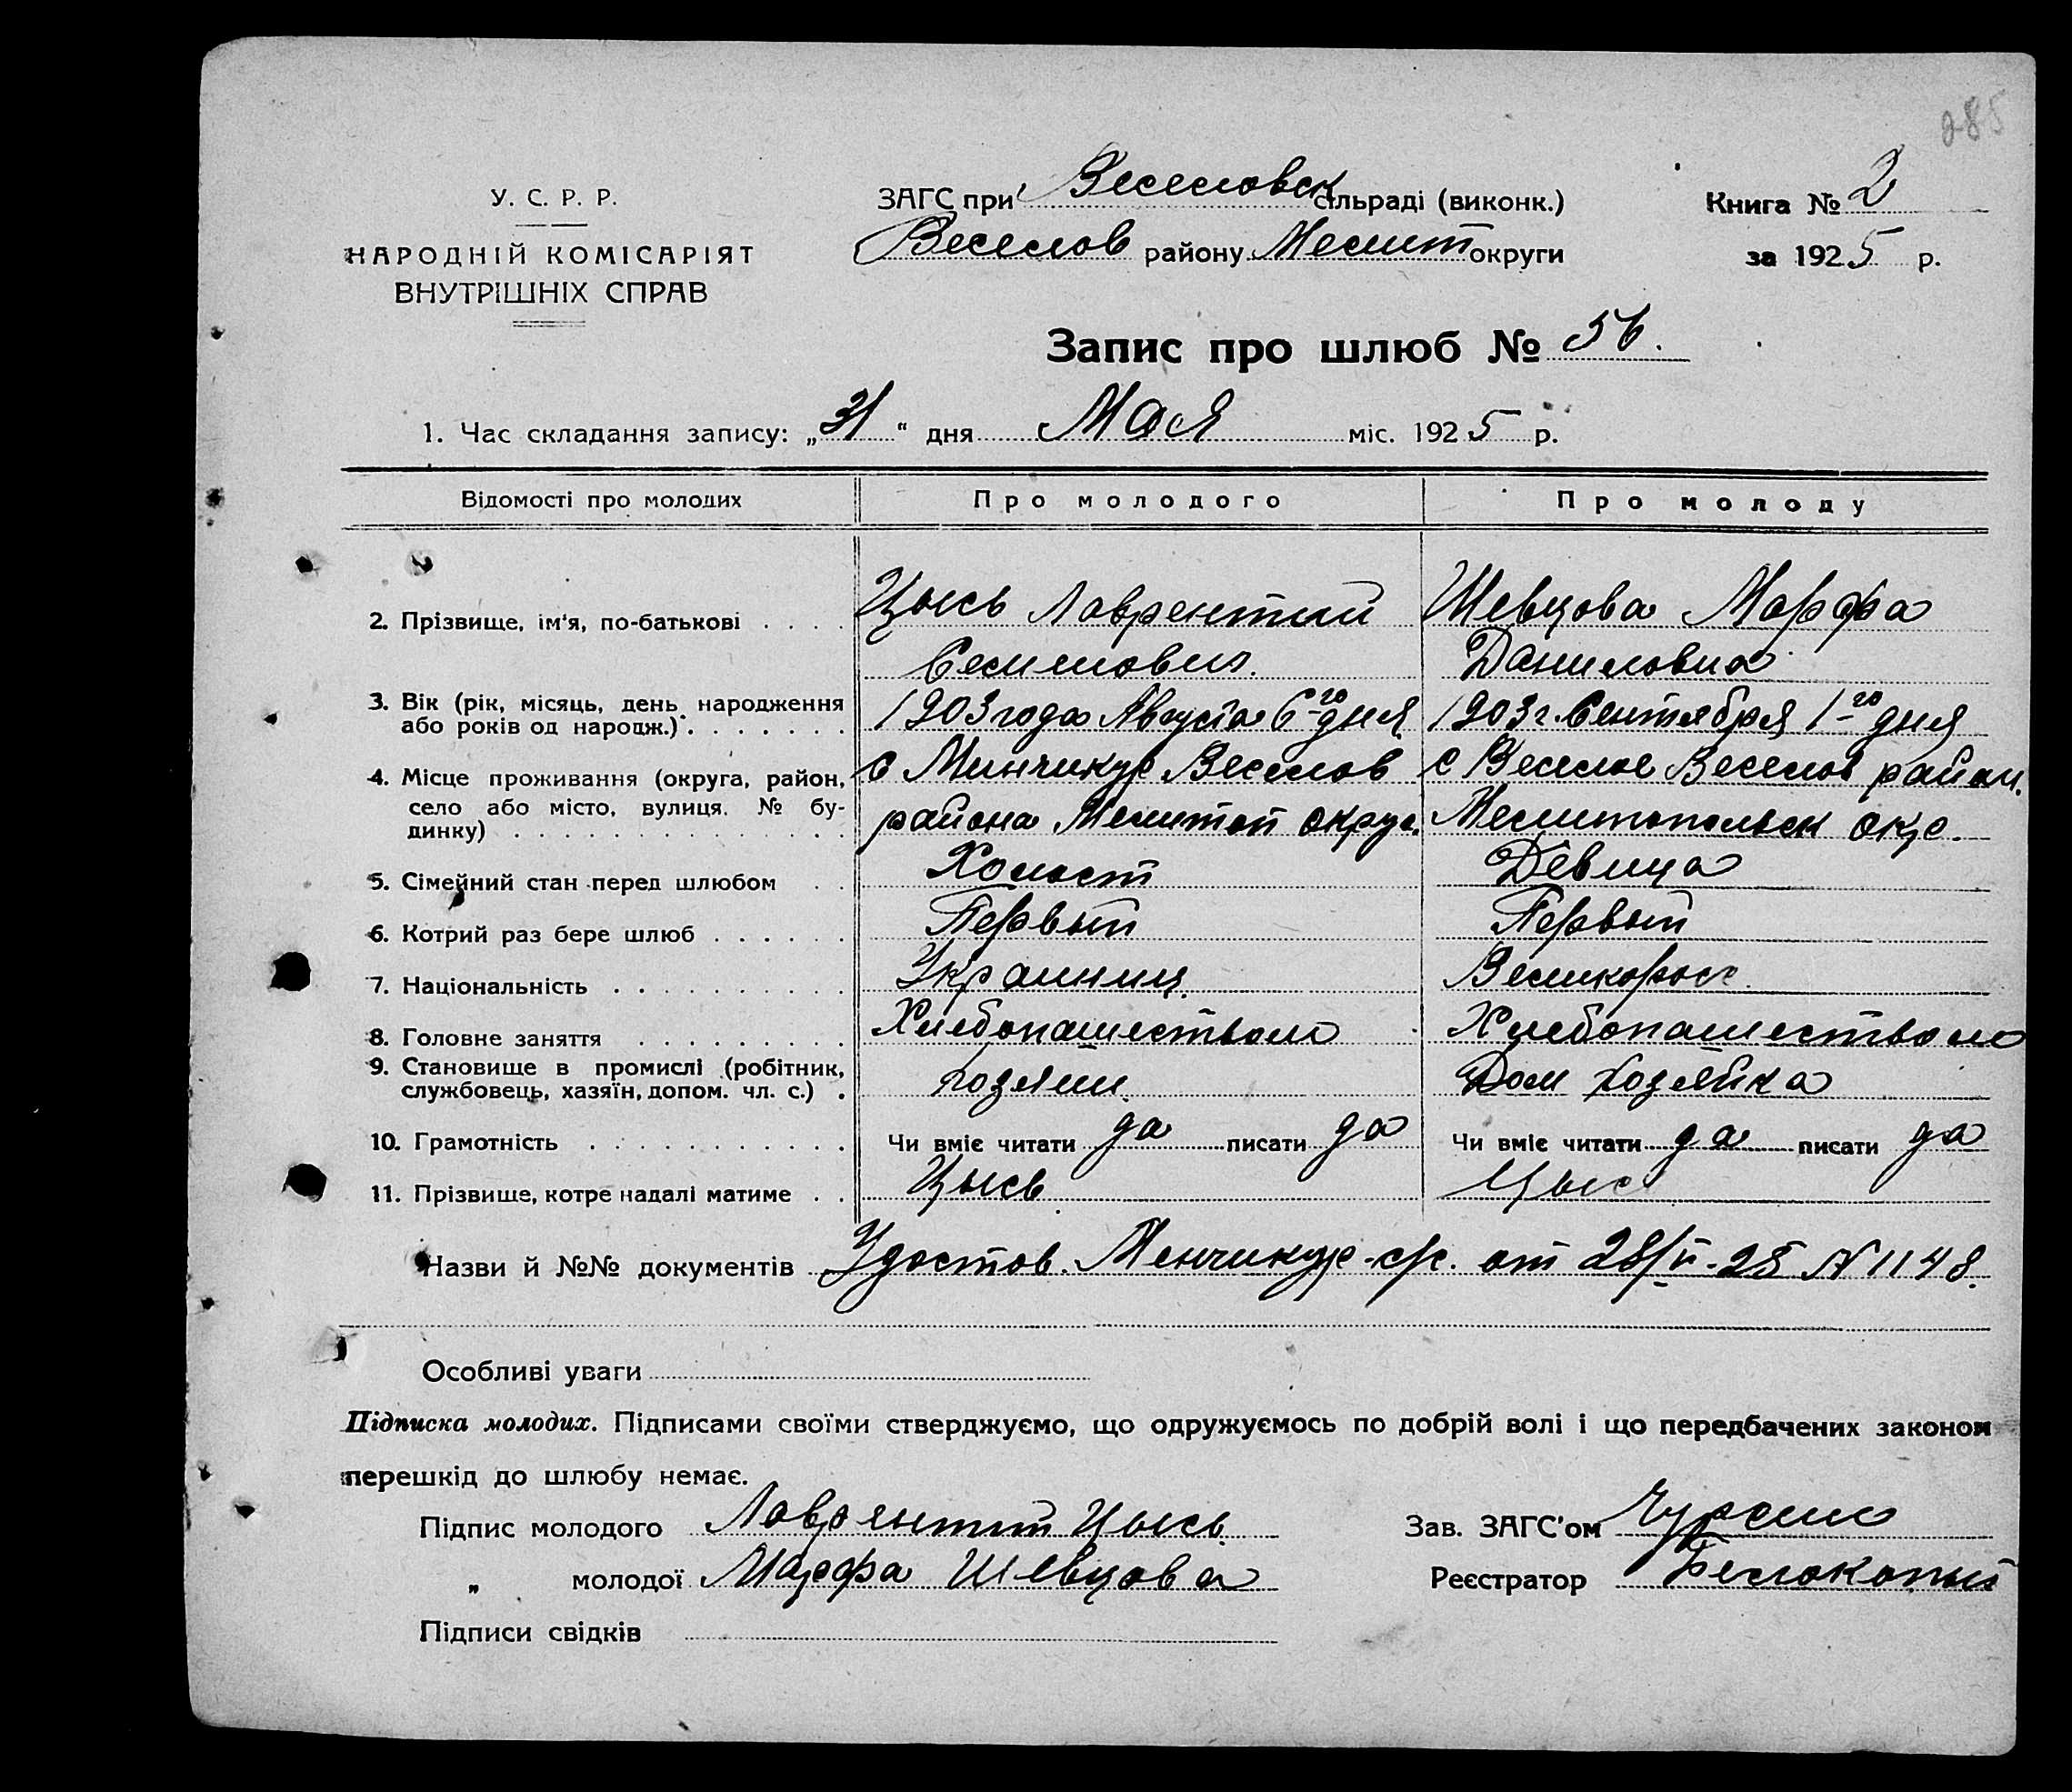 285
У. С. Р. Р.
НАРОДНІЙ КОМІСАРІЯТ
ВНУТРІШНІХ СПРАВ
ЗАГС при Веселовск сільраді (виконк.)
Веселов району Мелит округи
Книга № 2
за 1925 р.
Запис про шлюб № 56.
1. Час складання запису: „31“ дня Мая міс. 1925 р.
Відомості про молодих Про молодого Про молоду
2. Прізвище, ім'я, по-батькові . . . . Цысь Лаврентий Шевцова Марфа
Даниловна
3. Вік (рік, місяць, день народження 1903 года Августа 6-го дня 1903 г. Сентября 1-го дня
або років од народж.) . . . . . . .
4. Місце проживання (округа, район, с Менчикур Веселов с Веселое Веселов район.
село або місто, вулиця. № бу- района Мелитоп округ. Мелитопольск окр.
динку) . . . . . . . . . . . . . .
5. Сімейний стан перед шлюбом . . Холост Девица
6. Котрий раз бере шлюб . . . . . . Первый Первый
7. Національність . . . . . . . . . . Украинец Великорос
8. Головне заняття . . . . . . . . . Хлебопашеством Хлебопашеством
9. Становище в промислі (робітник, хозяин Дом хозяйка
службовець, хазяїн, допом. чл. с.) .
10. Грамотність . . . . . . . . . . . Чи вміє читати да писати да Чи вміє читати да писати да
11. Прізвище, котре надалі матиме . . Цысь Цыс
Назви й №№ документів Удостов. Менчикур с/с. от 28/V-25 N 1148.
Особливі уваги
Підписка молодих. Підписами своїми стверджуємо, що одружуємось по добрій волі і що передбачених законом
перешкід до шлюбу немає.
Підпис молодого Лаврентий Цысь Зав. ЗАГС'ом
„ молодої Марфа Шевцова Реєстратор Белокопый
Підписи свідків